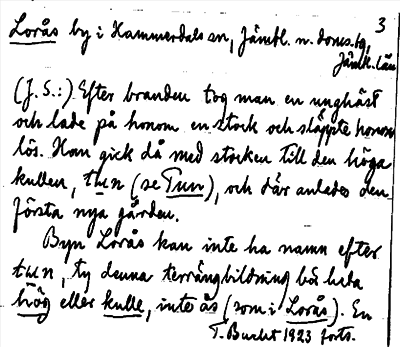 3
Lorås by i Hammerdals sn, Jämtl. n. doms.bg,
Jämtl. län
(J.S.:) Efter branden tog man en unghäst
och lade på honom en stock och släppte honom
lös. Han gick då med stocken till den höga
kullen, tɯn (se Tun), och där anlades den
första nya gården.
Byn Lorås kan inte ha namn efter
tɯn, ty denna terrängbildning bör heta
hög eller kulle, inte ås (som i Lorås). En
T. Bucht 1923 forts.